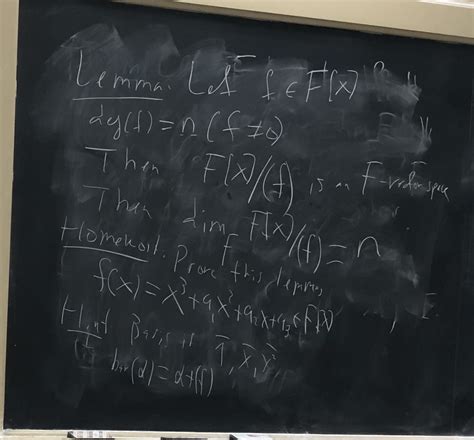 Lemma: Let f ∈ F[x]
deg(f) = n (f ≠ 0)
Then F[x]/(f) is an F-vector space
Then dim_F F[x]/(f) = n
Homework: Prove this lemma
f(x) = x³ + a₁x² + a₂x + a₃ ∈ F[x]
Hint Basis is 1̄, x̄, x̄²